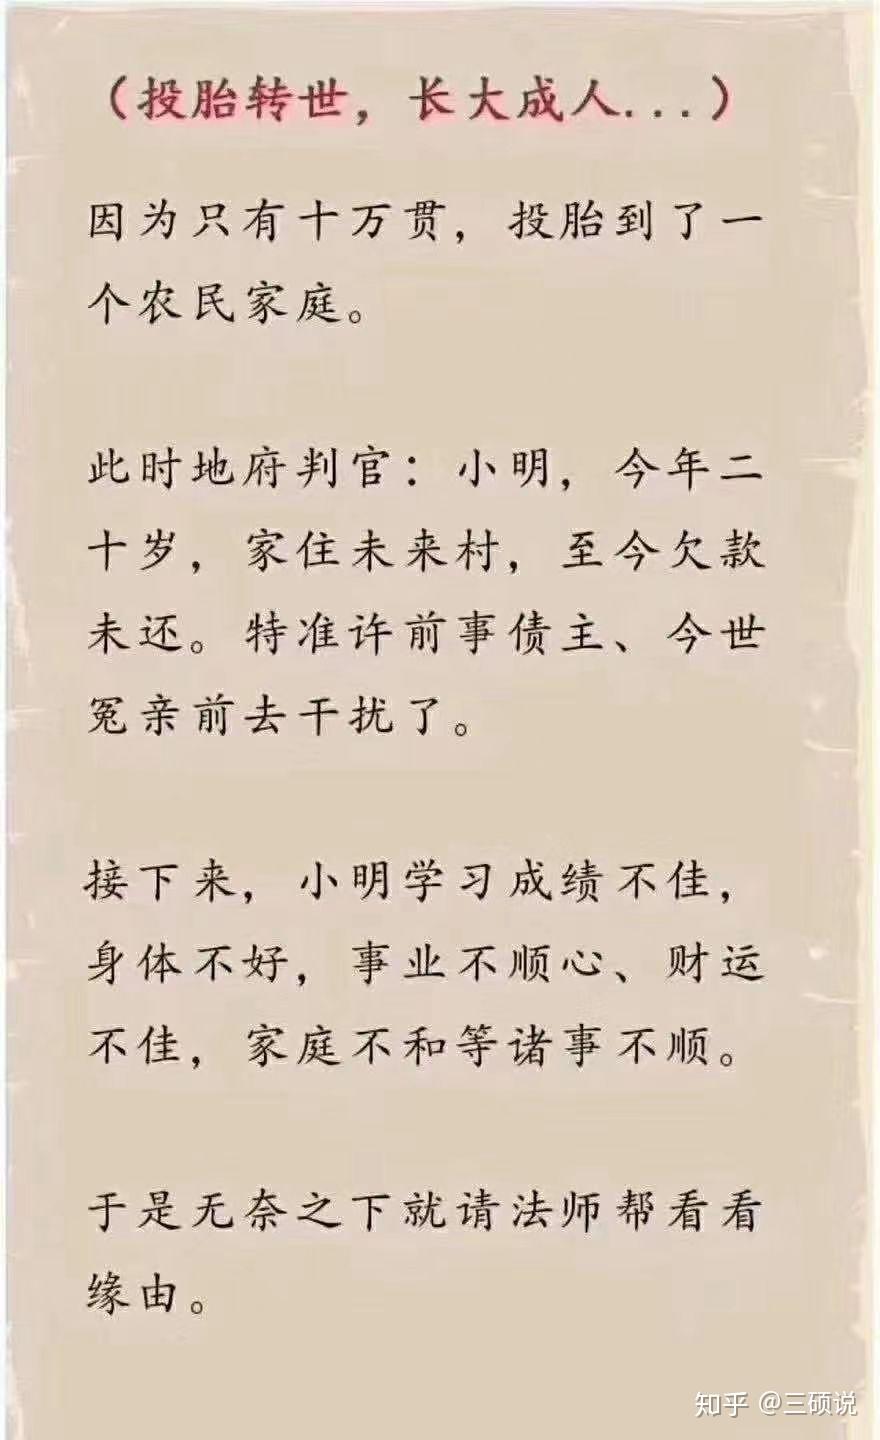 （投胎转世，长大成人...）
因为只有十万贯，投胎到了一
个农民家庭。
此时地府判官：小明，今年二
十岁，家住未来村，至今欠款
未还。特准许前事债主、今世
冤亲前去干扰了。
接下来，小明学习成绩不佳，
身体不好，事业不顺心、财运
不佳，家庭不和等诸事不顺。
于是无奈之下就请法师帮看看
缘由。
知乎 @三硕说